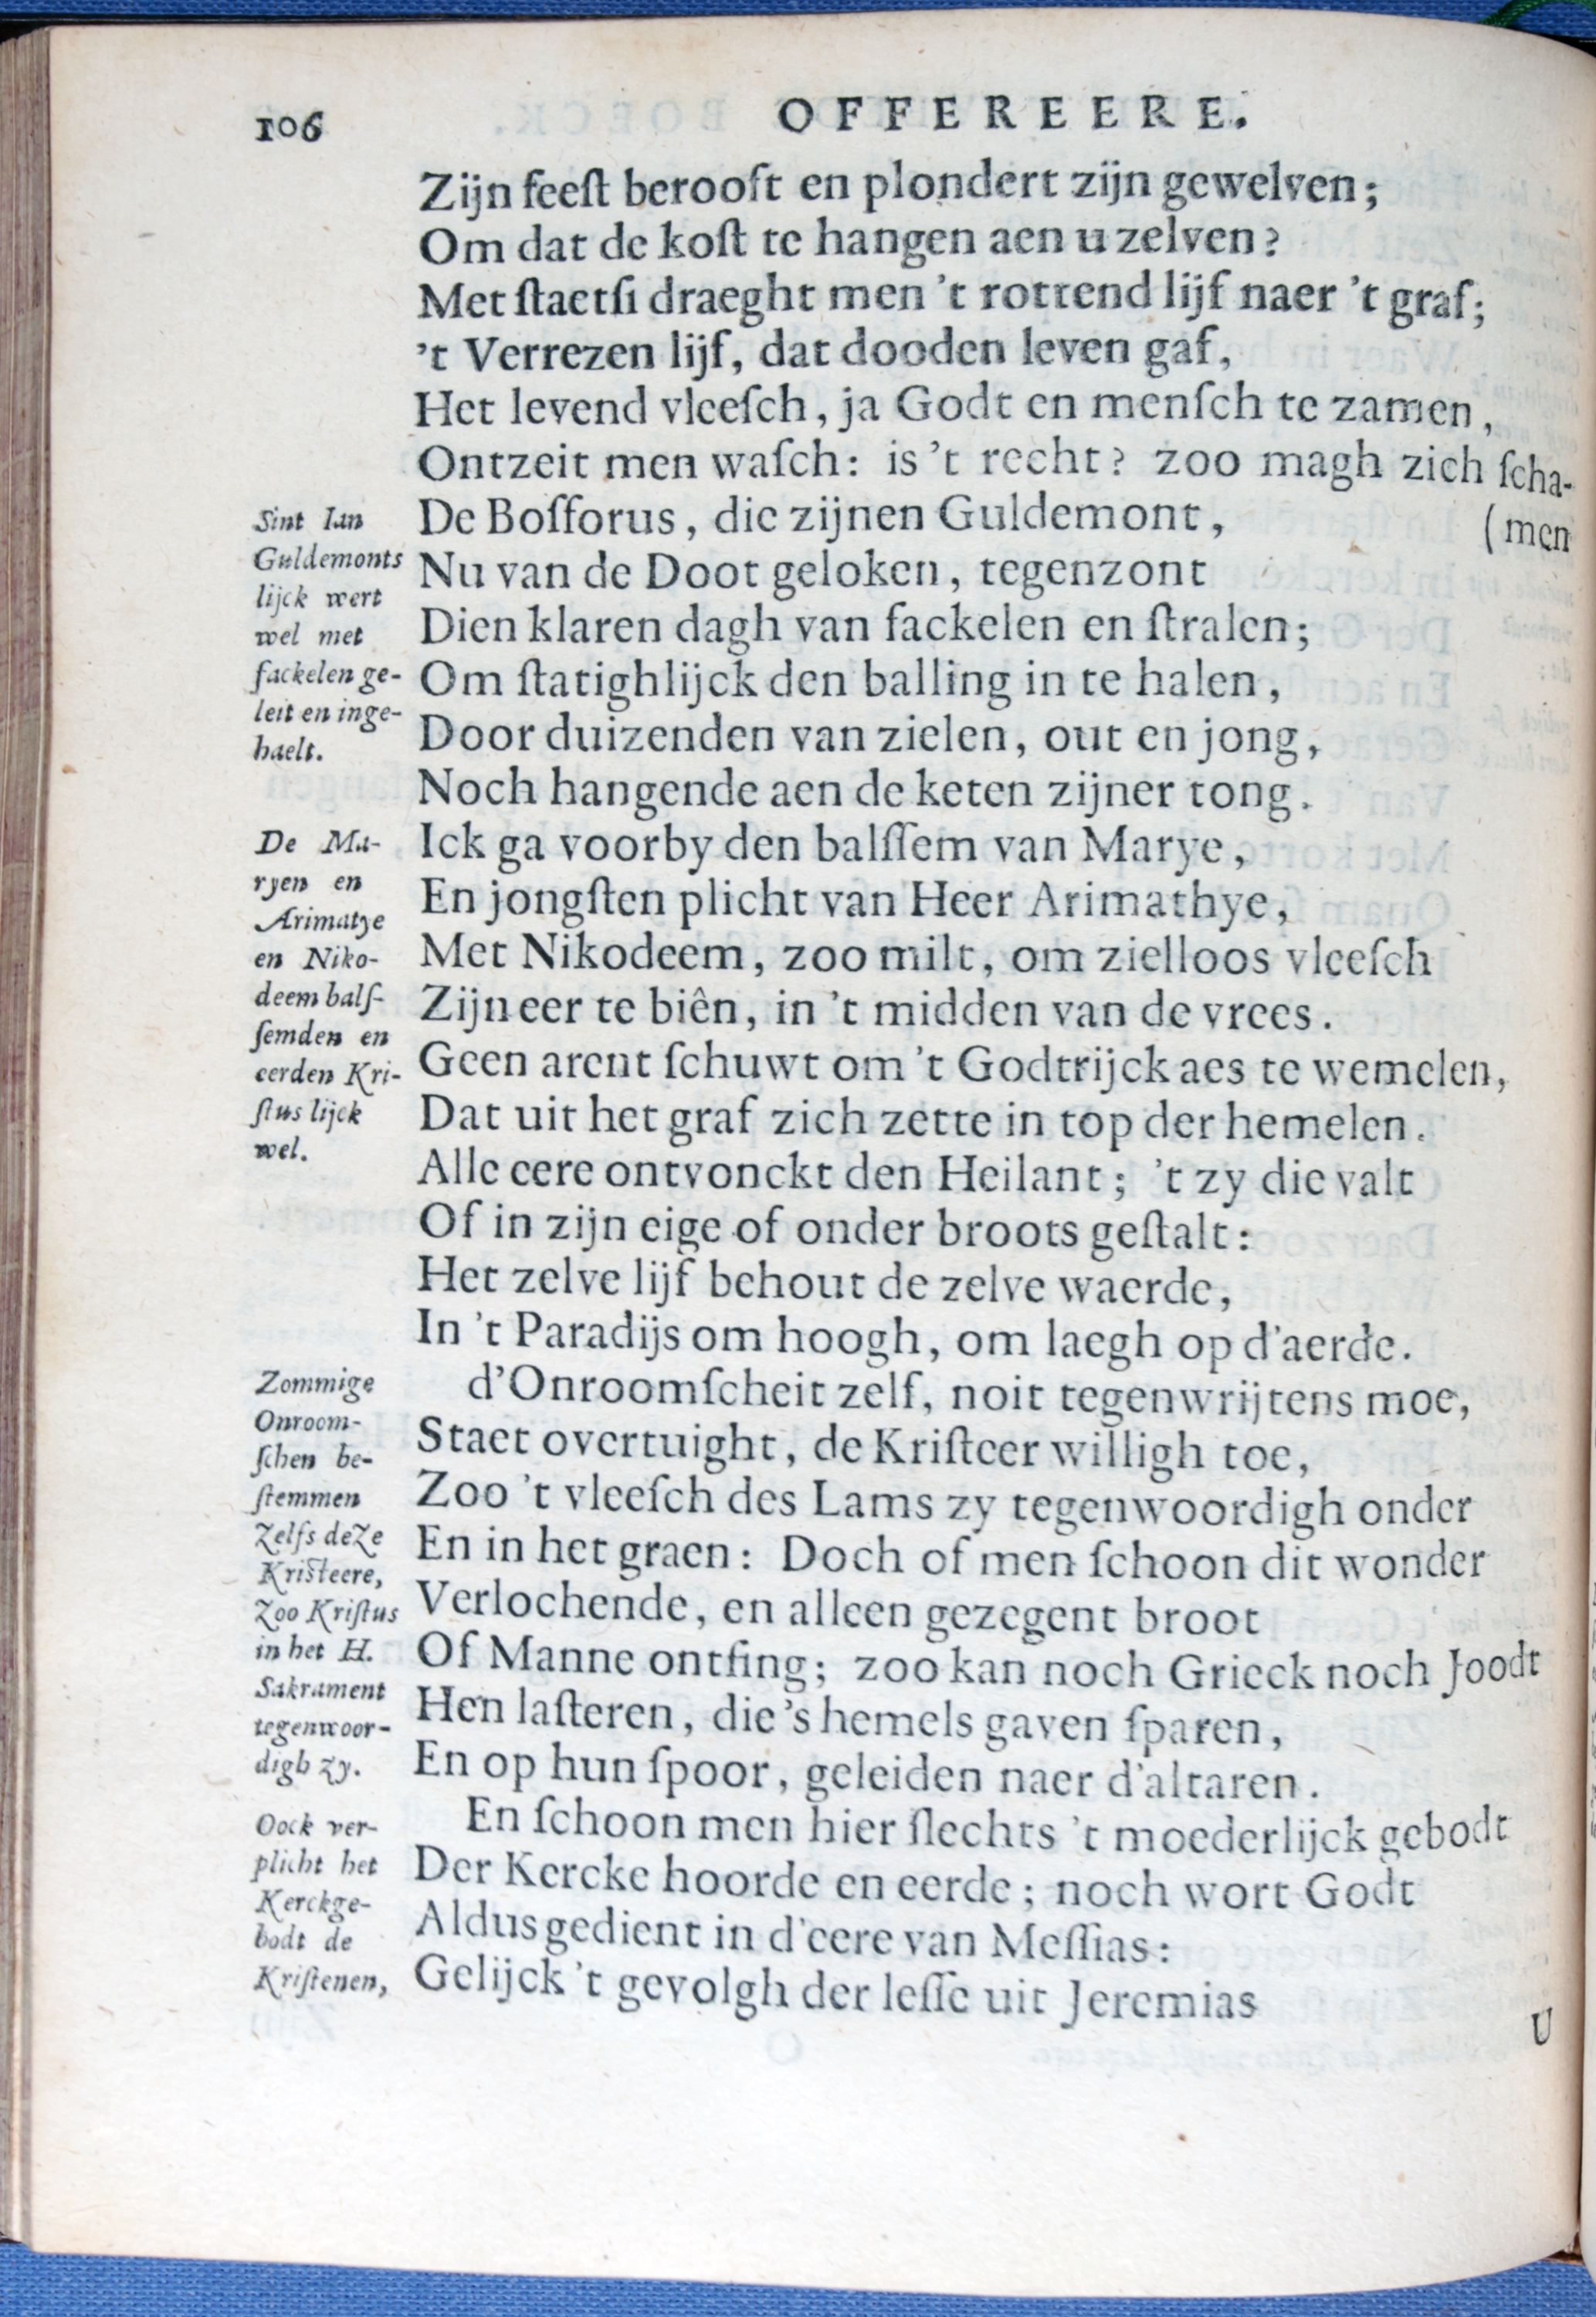 106
OFFEREERE.
Zijn feeſt berooft en plondert zijn gewelven;
Om dat de koſt te hangen aen u zelven?
Met ſtaetſi draeght men 't rottend lijf naer 't graf;
't Verrezen lijf, dat dooden leven gaf,
Het levend vleeſch, ja Godt en menſch te zamen,
Ontzeit men waſch: is 't recht? zoo magh zich ſcha-
(men
De Boſforus, die zijnen Guldemont,
Nu van de Doot geloken, tegenzont
Dien klaren dagh van fackelen en ſtralen;
Om ſtatighlijck den balling in te halen,
Door duizenden van zielen, out en jong,
Noch hangende aen de keten zijner tong.
Ick ga voorby den balſſem van Marye,
En jongſten plicht van Heer Arimathye,
Met Nikodeem, zoo milt, om zielloos vleeſch
Zijn eer te biên, in 't midden van de vrees.
Geen arent ſchuwt om 't Godtrijck aes te wemelen,
Dat uit het graf zich zette in top der hemelen.
Alle eere ontvonckt den Heilant; 't zy die valt
Of in zijn eige of onder broots geſtalt:
Het zelve lijf behout de zelve waerde,
In 't Paradijs om hoogh, om laegh op d'aerde.
d'Onroomſcheit zelf, noit tegenwrijtens moe,
Staet overtuight, de Kriſteer willigh toe,
Zoo 't vleeſch des Lams zy tegenwoordigh onder
En in het graen: Doch of men ſchoon dit wonder
Verlochende, en alleen gezegent broot
Of Manne ontfing; zoo kan noch Grieck noch Joodt
Hen laſteren, die 's hemels gaven ſparen,
En op hun ſpoor, geleiden naer d'altaren.
En ſchoon men hier ſlechts 't moederlijck gebodt
Der Kercke hoorde en eerde; noch wort Godt
Aldus gedient in d'eere van Meſſias:
Gelijck 't gevolgh der leſſe uit Jeremias
U
Sint Ian
Guldemonts
lijck wert
wel met
fackelen ge-
leit en inge-
haelt.
De Ma-
ryen en
Arimatye
en Niko-
deem balſ-
ſemden en
eerden Kri-
ſtus lijck
wel.
Zommige
Onroom-
ſchen be-
ſtemmen
zelfs deze
Kristeere,
zoo Kriſtus
in het H.
Sakrament
tegenwoor-
digh zy.
Oock ver-
plicht het
Kerckge-
bodt de
Kriſtenen,